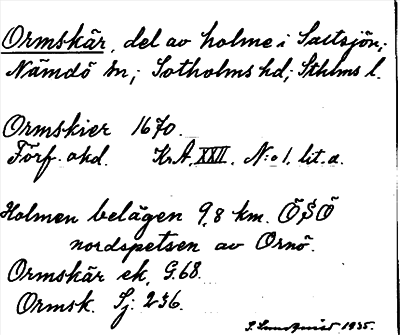 Ormskär, del av holme i Saltsjön;
Nämdö sn; Sotholms hd; Sthlms l.
Ormskier 1670.
Förf. okd. K.A. XXII. N:o 1. lit. a.
Holmen belägen 9,8 km. ÖSÖ
nordspetsen av Ornö.
Ormskär ek. G.68.
Ormsk. Sj: 236.
1935.